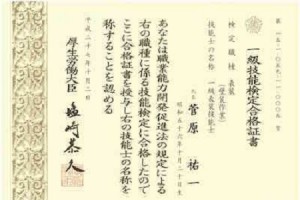 一級技能検定合格証書
検定職種 表装
（壁装作業）
技能士の名称 一級表装技能士
菅原祐一
昭和五十六年十月二十日生
あなたは職業能力開発促進法の規定による
右の職種に係る技能検定に合格したので、
ここに合格証書を授与し右の技能士の名称を
称することを認める
平成二十七年十月二日
厚生労働大臣
塩崎恭久